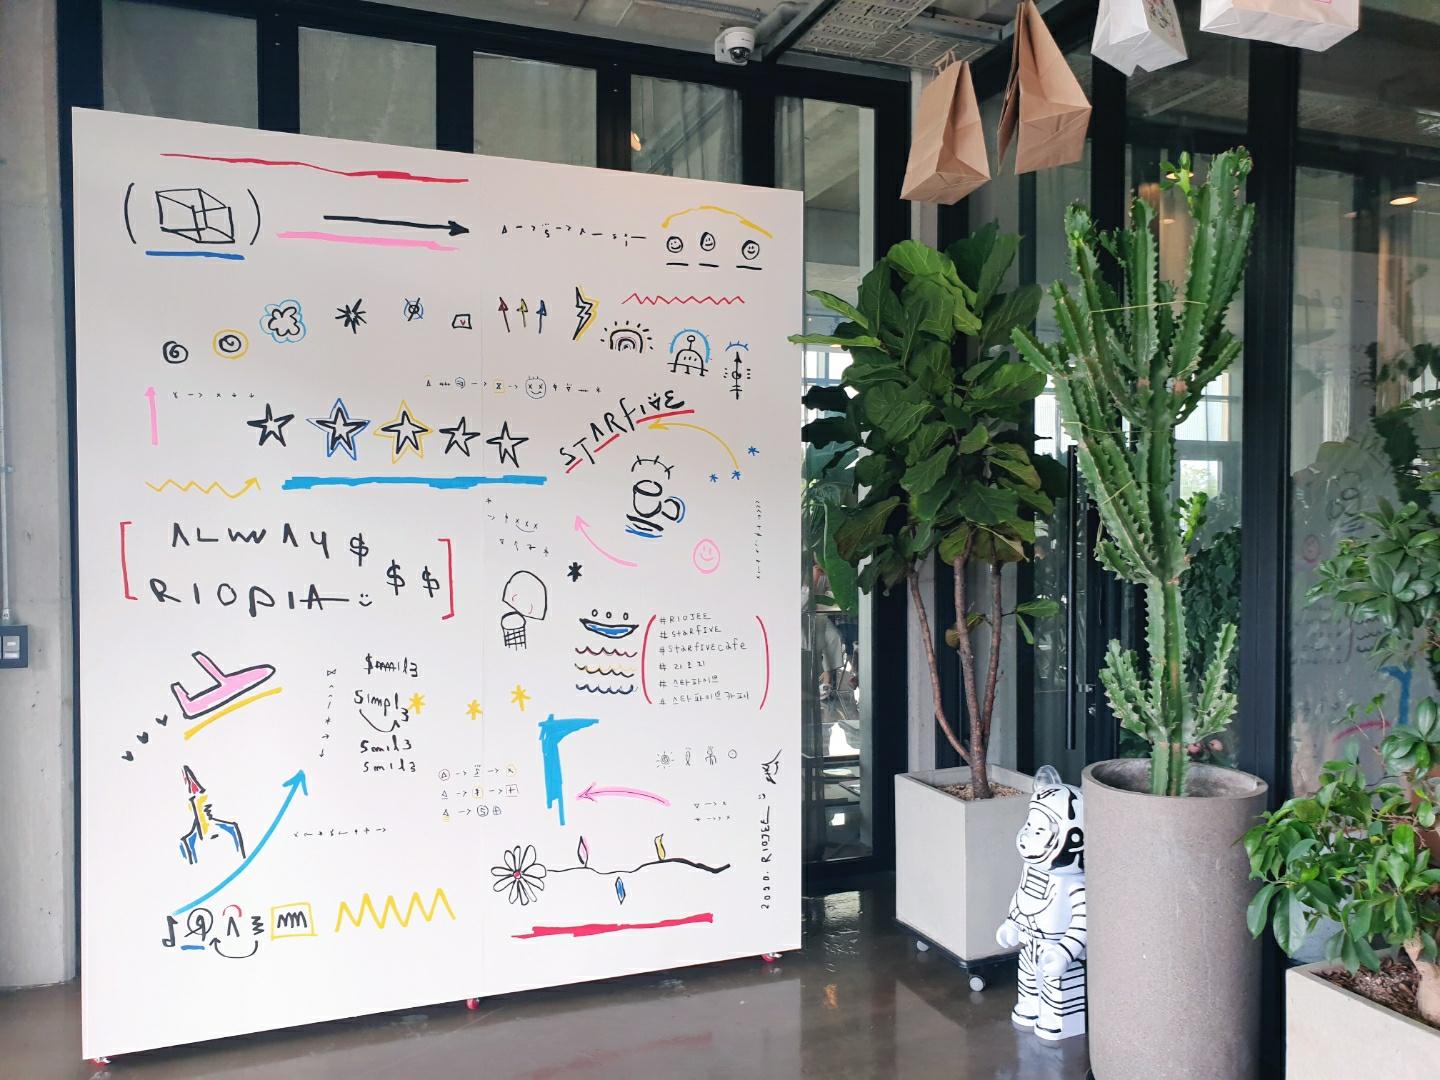 STARFIVE
ALWAY$
RIOPIA $ $
# RIOJEE
# STARFIVE
# STARFIVE cafe
# 리오지
# 스타파이브
# 스타파이브카페
$mil3
Simpl3
Smil3
Smil3
2020. RIOJEE